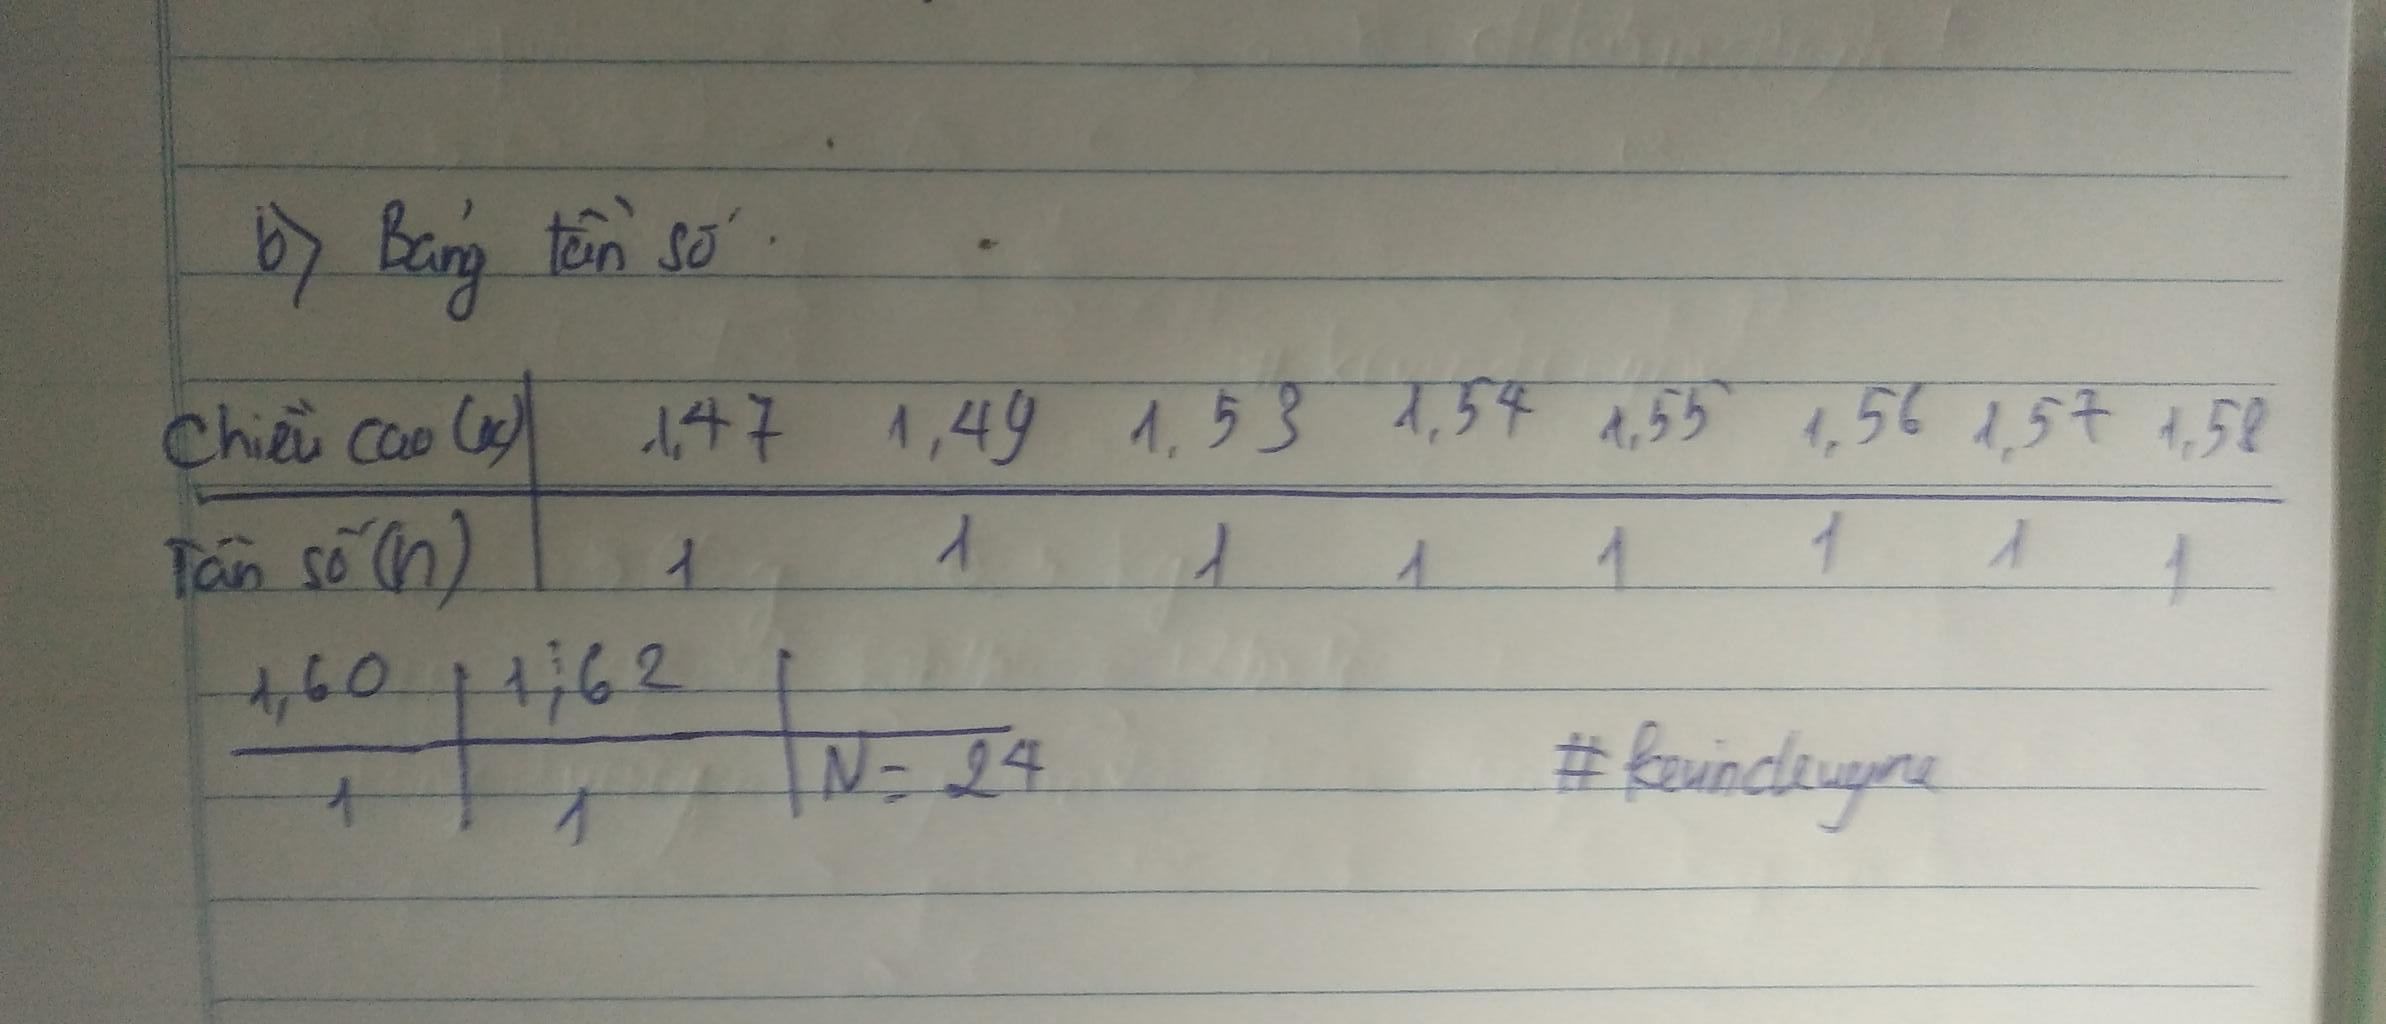 b) Bảng tần số
Chiều cao (x) 1,47 1,49 1,53 1,54 1,55 1,56 1,57 1,58
Tần số (n) 1 1 1 1 1 1 1 1
1,60 1,62
1 1 N = 24
#kevindeuyne